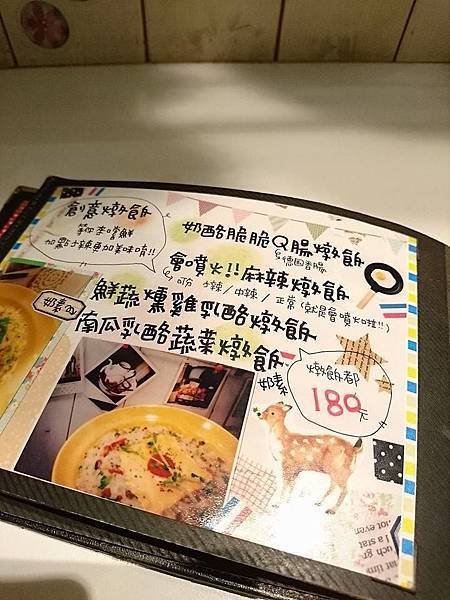 創意燉飯
新來嚐鮮
加點小辣更加美味唷!!
奶酪脆脆Q腸燉飯
德國香腸
會噴火!!麻辣燉飯
可分 小辣/中辣/正常(就是會噴火啦!!)
鮮蔬燻雞乳酪燉飯
奶素可
南瓜乳酪蔬菜燉飯
奶素
燉飯都
180元